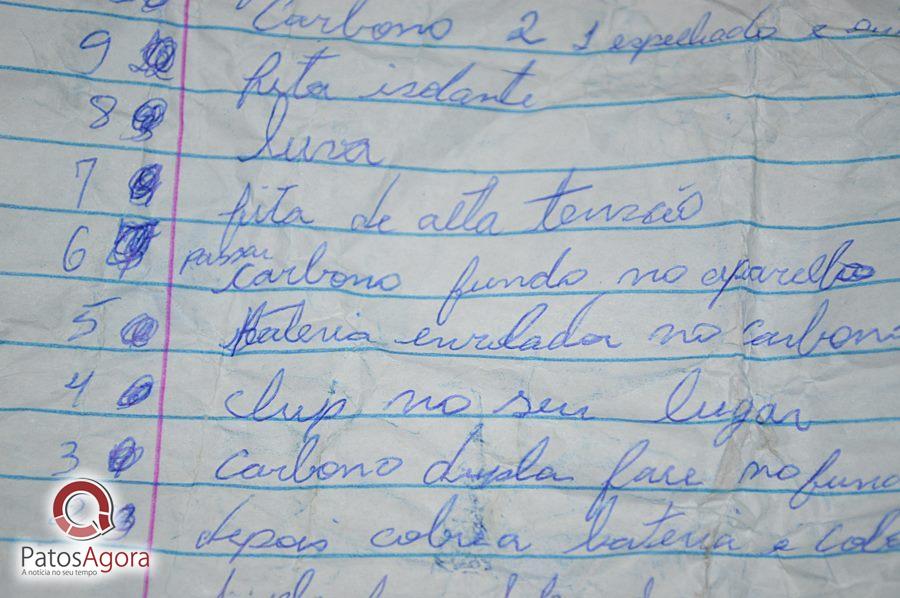 Carbono 2 1 espelhado e
9 fita isolante
8 luva
7 fita de alta tenzão
6 passar carbono fundo no aparelho
5 Bateria enrolada no carbono
4 chip no seu lugar
3 carbono dupla face no fund
3 depois cobrea bateria e colo
PatosAgora
A notícia no seu tempo